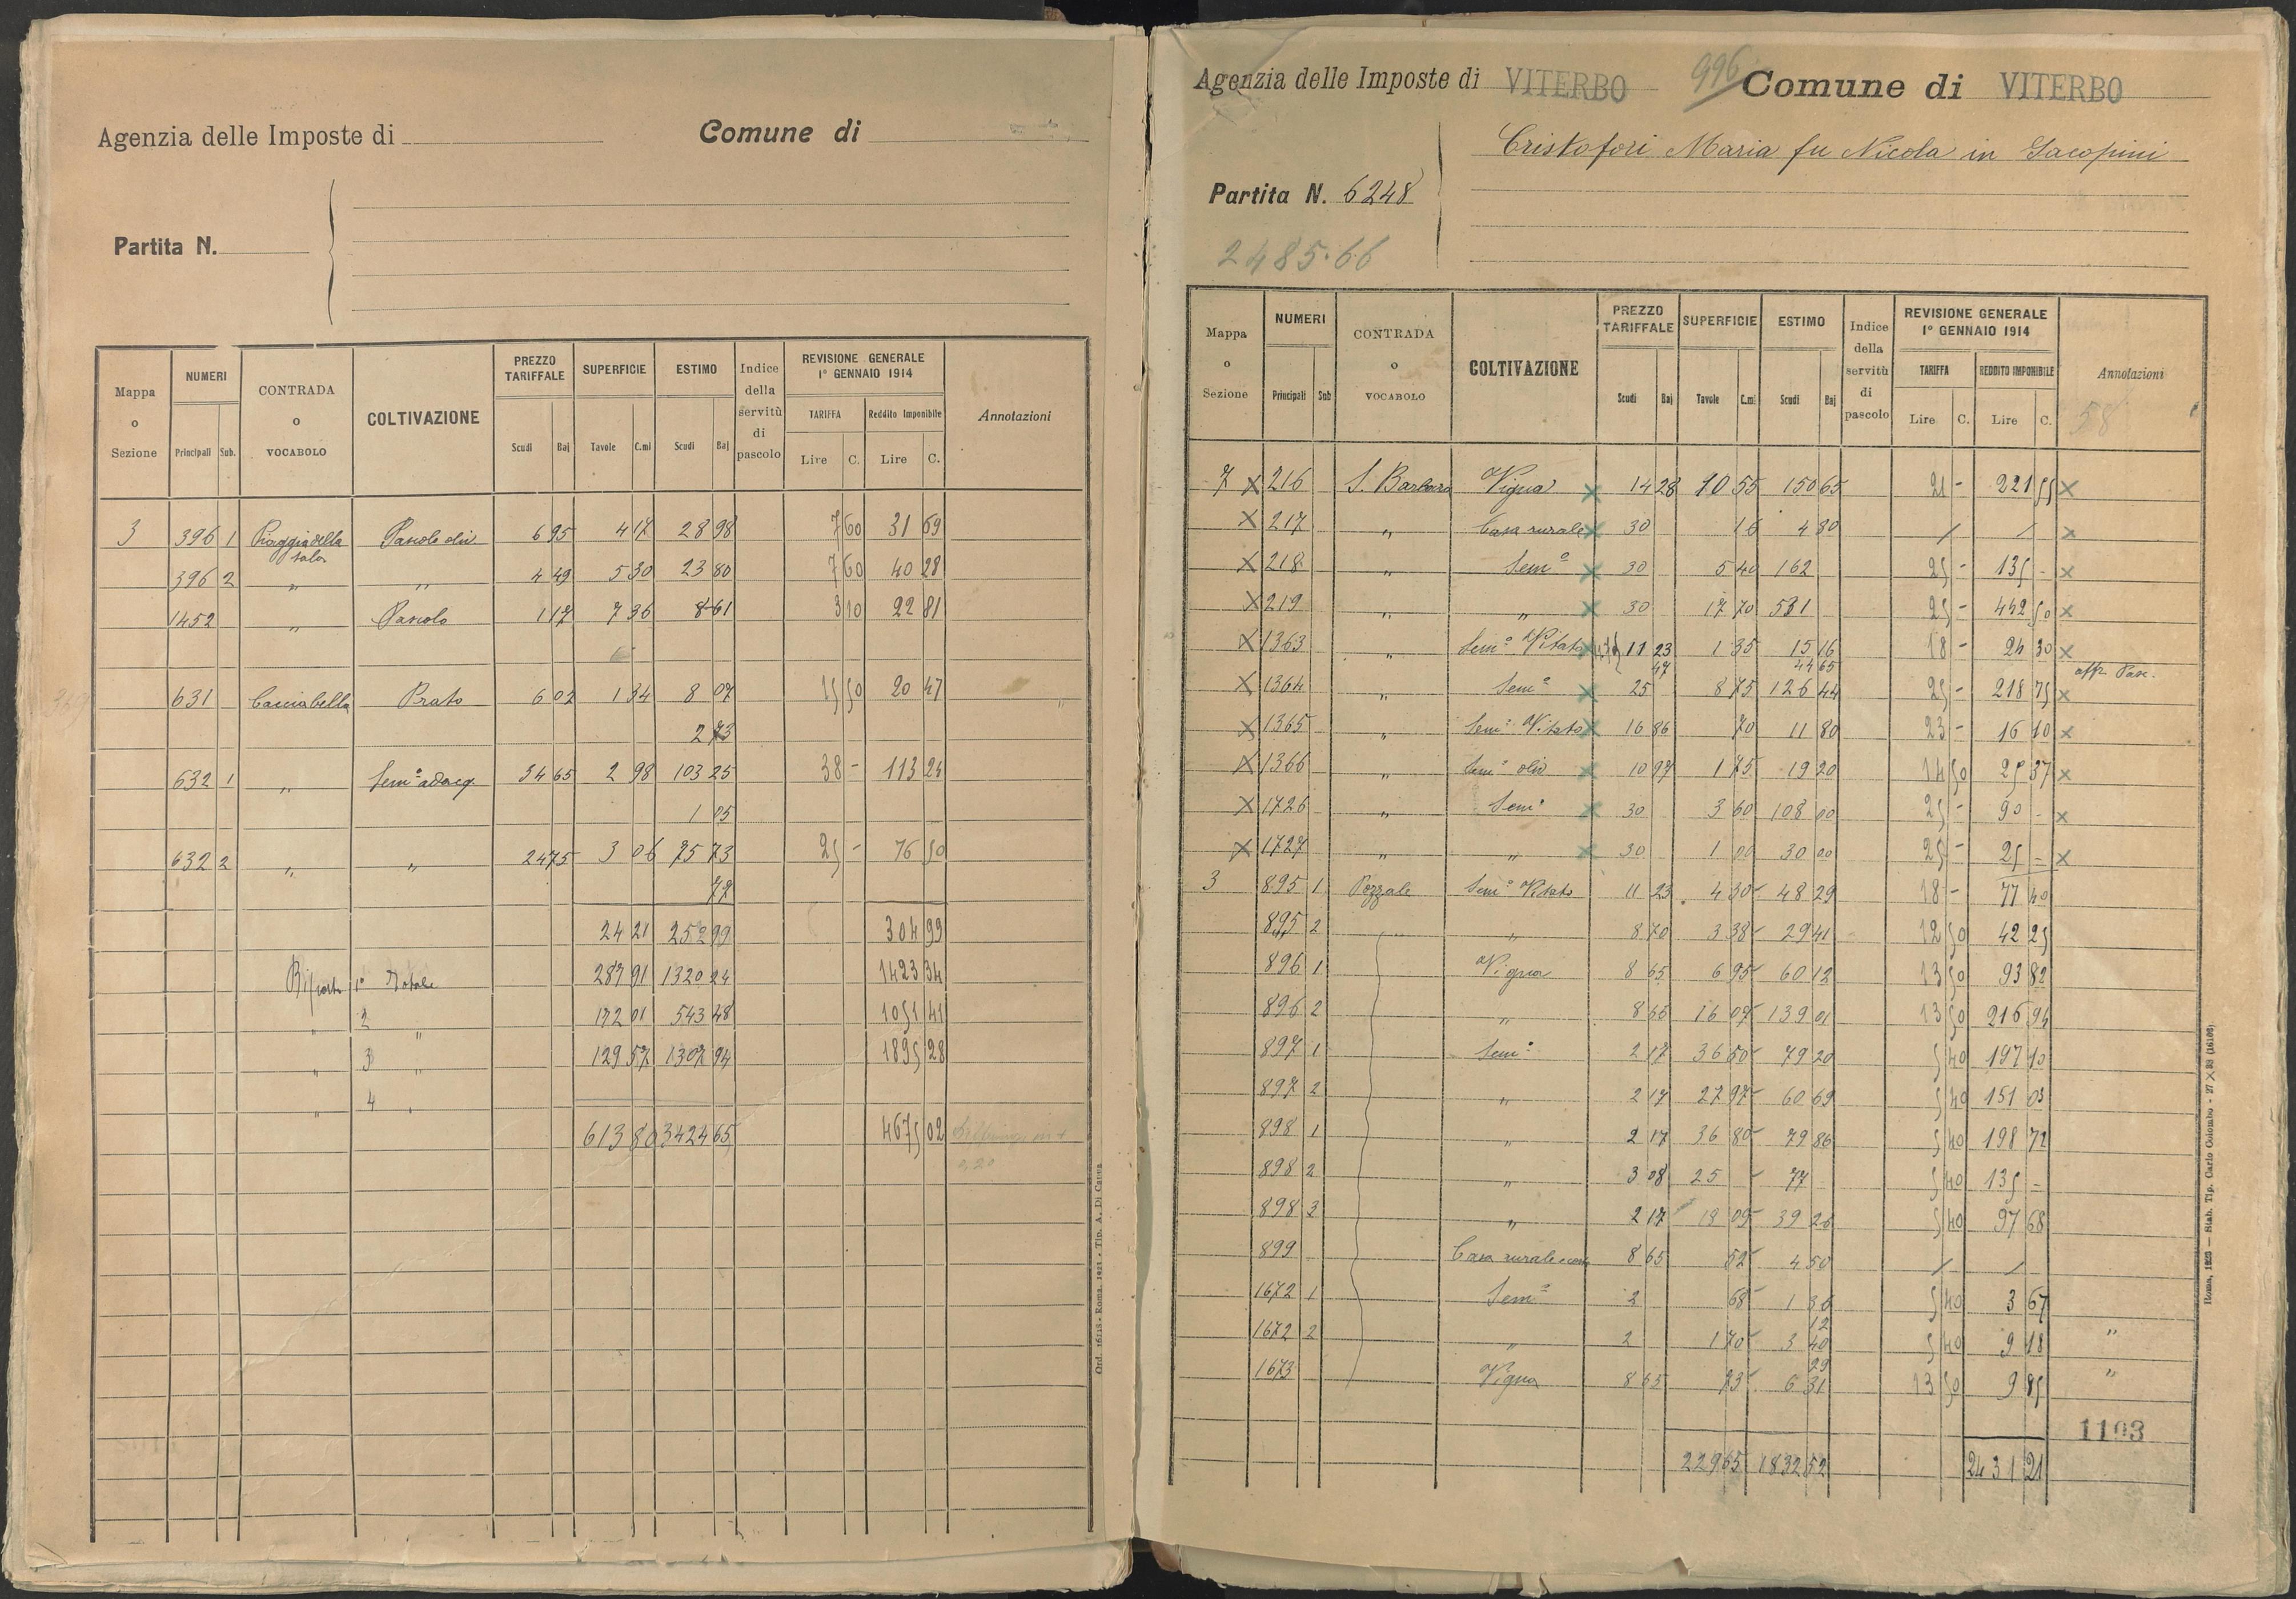 Agenzia delle Imposte di Comune di
Partita N.
Mappa o Sezione NUMERI Principali Sub. CONTRADA o VOCABOLO COLTIVAZIONE PREZZO TARIFFALE Scudi Baj SUPERFICIE Tavole C.mi ESTIMO Scudi Baj Indice della servitù di pascolo REVISIONE GENERALE 1° GENNAIO 1914 TARIFFA Lire C. Reddito Imponibile Lire C. Annotazioni
3 396 1 Piaggia della Sala Pascolo oliv 6 95 4 17 28 98 7 60 31 69
396 2 " " 4 49 5 30 23 80 7 60 40 28
1452 " Pascolo 1 17 7 36 8 61 3 10 22 81
631 Cacciabella Prato 6 02 1 34 8 07 15 50 20 47
2 73
632 1 " Sem° adacq 34 65 2 98 103 25 38 - 113 24
1 05
632 2 " " 24 75 3 06 75 73 25 - 76 50
77
24 21 252 99 304 99
Riporto 1° Totale 287 91 1320 24 1423 34
" 2 " 172 01 543 48 1051 41
" 3 " 129 57 1307 94 1895 28
" 4 "
613 80 3424 65 4675 02
Ord. 16218 - Roma, 1921 - Tip. A. Di Cauva
Agenzia delle Imposte di VITERBO 996 Comune di VITERBO
Cristofori Maria fu Nicola in Iacopini
Partita N. 6248
2485.66
Mappa o Sezione NUMERI Principali Sub CONTRADA o VOCABOLO COLTIVAZIONE PREZZO TARIFFALE Scudi Baj SUPERFICIE Tavole C.mi ESTIMO Scudi Baj Indice della servitù di pascolo REVISIONE GENERALE 1° GENNAIO 1914 TARIFFA Lire C. REDDITO IMPONIBILE Lire C. Annotazioni
58
7 X 216 S. Barbara Vigna X 14 28 10 55 150 65 21 - 221 55 X
X 217 " Casa rurale X 30 16 4 80 / / X
X 218 " Sem° X 30 5 40 162 25 - 135 - X
X 219 " " X 30 17 70 531 25 - 442 50 X
X 1363 " Sem° Vitato X 11 23 1 35 15 16 18 - 24 30 X
47 44 65 app. Pasc.
X 1364 " Sem° X 25 8 75 126 44 25 - 218 75 X
X 1365 " Sem° Vitato X 16 86 70 11 80 23 - 16 10 X
X 1366 " Sem° oliv X 10 97 1 75 19 20 14 50 25 37 X
X 1726 " Sem° X 30 3 60 108 00 25 - 90 - X
X 1727 " " X 30 1 00 30 00 25 - 25 - X
3 895 1 Pozzale Sem° Vitato 11 23 4 30 48 29 18 - 77 40
895 2 " " 8 70 3 38 29 41 12 50 42 25
896 1 Vigna 8 65 6 95 60 12 13 50 93 82
896 2 " 8 65 16 07 139 01 13 50 216 94
897 1 Sem° 2 17 36 50 79 20 5 40 197 10
897 2 " 2 17 27 97 60 69 5 40 151 03
898 1 " 2 17 36 80 79 86 5 40 198 72
898 2 " 3 08 25 - 77 5 40 135 -
898 3 " 2 17 18 09 39 26 5 40 97 68
899 Casa rurale e corte 8 65 52 4 50 / /
1672 1 Sem° 2 68 1 36 5 40 3 67
12
1672 2 " 2 1 70 3 40 5 40 9 18 "
29
1673 Vigna 8 65 73 6 31 13 50 9 85 "
1103
229 65 1832 52 2431 21
Roma, 1923 — Stab. Tip. Carlo Colombo - 27 X 38 (16106)